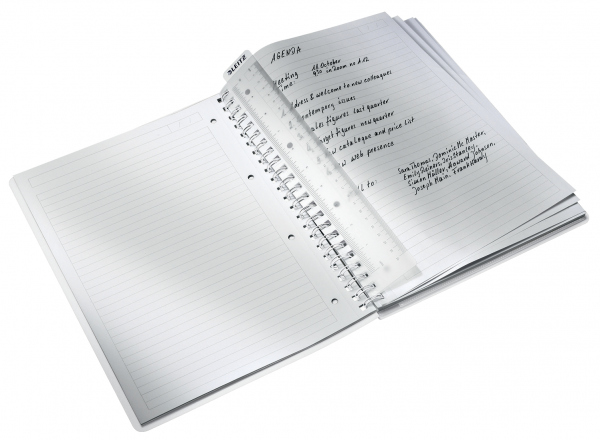 LEITZ
AGENDA
eeting 18. October
ime: 9 30 in Room no A.12
dress & welcome to new colleagues
ontemporary issues
ales figures last quarter
rget figures new quarter
w catalogue and price list
w web presence
to:
Sara Thomas, Dominic Mc Master,
Emily Reiners, Iris Stanley,
Simon Müller, Howard Johnson,
Joseph Main, Frank Hardy